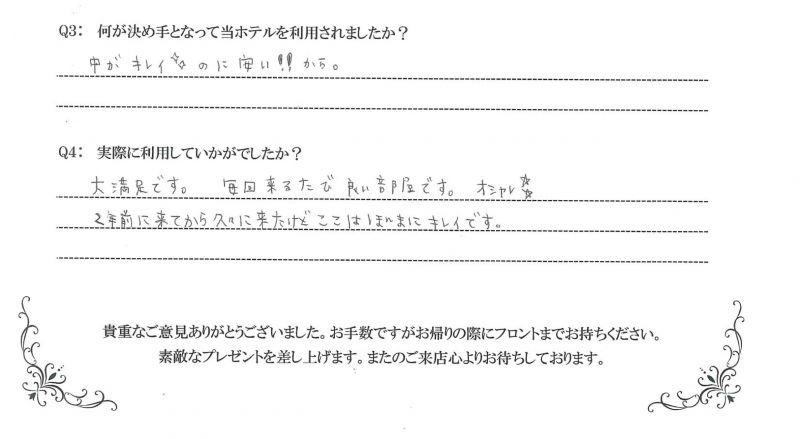 Q3: 何が決め手となって当ホテルを利用されましたか？
中がキレイ☆☆のに安い!!から。
Q4: 実際に利用していかがでしたか？
大満足です。 毎回来るたび良い部屋です。 オシャレ☆☆
2年前に来てから久々に来たけどここはほんまにキレイです。
貴重なご意見ありがとうございました。お手数ですがお帰りの際にフロントまでお持ちください。
素敵なプレゼントを差し上げます。またのご来店心よりお待ちしております。